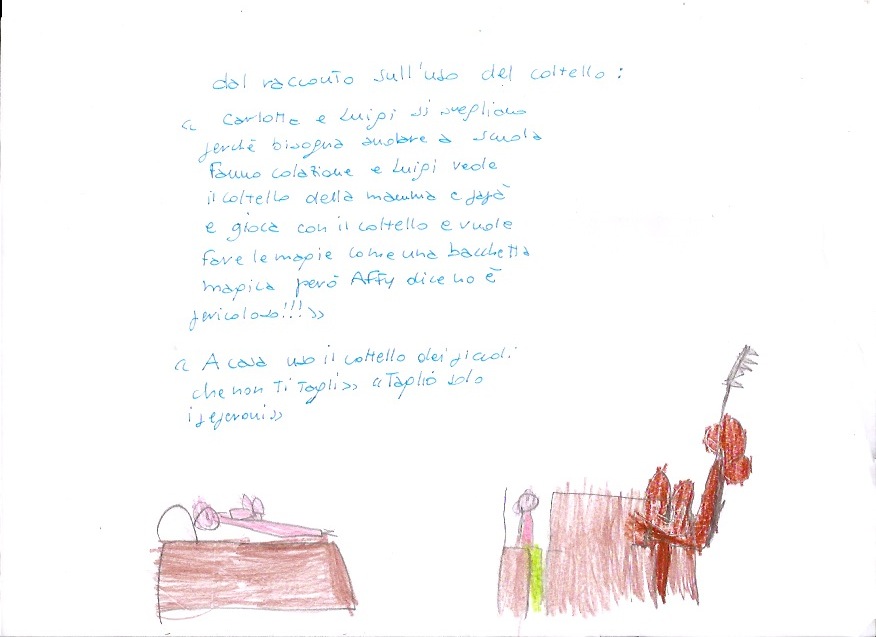 dal racconto sull'uso del coltello:
« Carlotta e Luigi si svegliano
perchè bisogna andare a scuola
Fanno colazione e Luigi vede
il coltello della mamma e papà
e gioca con il coltello e vuole
fare le magie come una bacchetta
magica però Affy dice no è
pericoloso!!!»
« A casa uso il coltello dei piccoli
che non ti tagli» «Taglio solo
i peperoni»